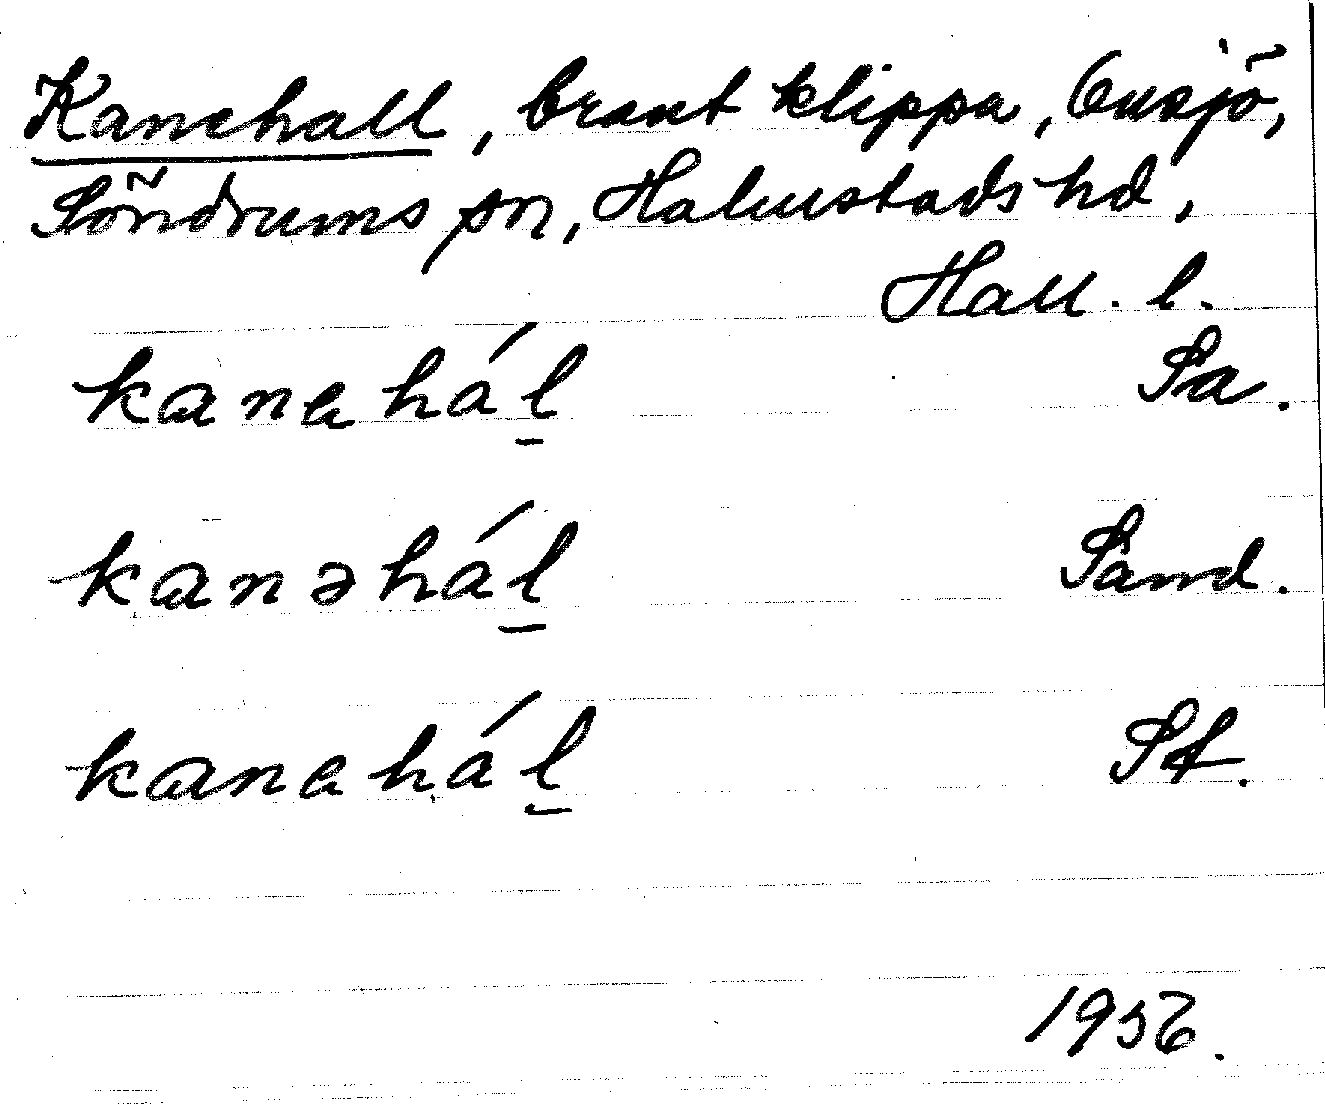 Kanehall, brant klippa, Onsjö,
Söndrums sn, Halmstads hd,
Hall. l.
kaneháḻ Sa.
kanəháḻ Sand.
kaneháḻ St.
1956.